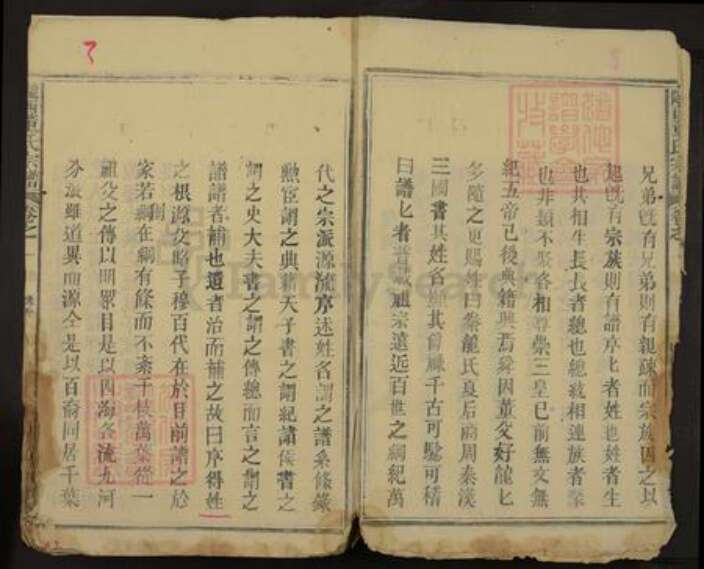 兄弟旣有兄弟則有親疎而宗族因之以
起旣有宗族則有譜序匕者姓也姓者生
也共相生長長者總也總統相連族者聚
也非類不聚各相尊榮三皇已前無文無
紀五帝已後典籍興焉舜因董父好龍匕
多隨之更賜姓曰豢龍氏夏后商周秦漢
三國書其姓名顯其爵祿千古可驗可稽
曰譜匕者普載祖宗遠近百世之綱紀萬
代之宗派源流序述姓名謂之譜系條錄
勲宦謂之典籍天子書之謂紀諸侯書之
謂之史大夫書之謂之傳總而言之謂之
譜譜者補也遺者治而補之故曰序得姓
之根源父昭子穆百代在於目前譜之於
家若網在綱有條而不紊千枝萬葉從一
祖父之傳以明眾目是以四海各流九河
分派雖道異而源仝是以百裔同居千葉
氏宗譜 卷之一
FamilySearch